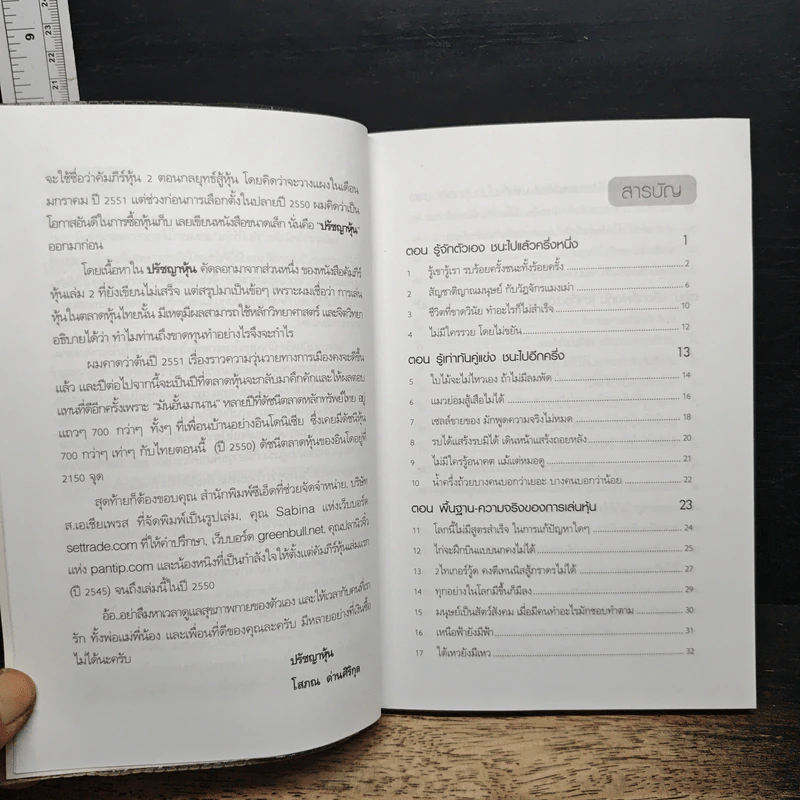 จะใช้ชื่อว่าคัมภีร์หุ้น 2 ตอนกลยุทธ์สู้หุ้น โดยคิดว่าจะวางแผงในเดือน
มกราคม ปี 2551 แต่ช่วงก่อนการเลือกตั้งในปลายปี 2550 ผมคิดว่าเป็น
โอกาสอันดีในการซื้อหุ้นเก็บ เลยเขียนหนังสือขนาดเล็ก นั่นคือ "ปรัชญาหุ้น"
ออกมาก่อน
โดยเนื้อหาใน ปรัชญาหุ้น คัดลอกมาจากส่วนหนึ่ง ของหนังสือคัมภีร์
หุ้นเล่ม 2 ที่ยังเขียนไม่เสร็จ แต่สรุปมาเป็นข้อๆ เพราะผมเชื่อว่า การเล่น
หุ้นในตลาดหุ้นไทยนั้น มีเหตุมีผลสามารถใช้หลักวิทยาศาสตร์ และจิตวิทยา
อธิบายได้ว่า ทำไมท่านถึงขาดทุนทำอย่างไรจึงจะกำไร
ผมคาดว่าต้นปี 2551 เรื่องราวความวุ่นวายทางการเมืองคงจะดีขึ้น
แล้ว และปีต่อไปจากนี้จะเป็นปีที่ตลาดหุ้นจะกลับมาคึกคักและให้ผลตอบ
แทนที่ดีอีกครั้งเพราะ "มันอั้นมานาน" หลายปีที่ดัชนีตลาดหลักทรัพย์ไทย อยู่
แถวๆ 700 กว่าๆ ทั้งๆ ที่เพื่อนบ้านอย่างอินโดนิเซีย ซึ่งเคยมีดัชนีหุ้น
700 กว่าๆ เท่าๆ กับไทยตอนนี้ (ปี 2550) ดัชนีตลาดหุ้นของอินโดอยู่ที่
2150 จุด
สุดท้ายก็ต้องขอบคุณ สำนักพิมพ์ซีเอ็ดที่ช่วยจัดจำหน่าย, บริษัท
ส.เอเชียเพรส ที่จัดพิมพ์เป็นรูปเล่ม, คุณ Sabina แห่งเว็บบอร์ด
settrade.com ที่ให้คำปรึกษา, เว็บบอร์ด greenbull.net, คุณปลานิลจิ๋ว
แห่ง pantip.com และน้องหนิงที่เป็นกำลังใจให้ตั้งแต่คัมภีร์หุ้นเล่มแรก
(ปี 2545) จนถึงเล่มนี้ในปี 2550
อ้อ..อย่าลืมหาเวลาดูแลสุขภาพกายของตัวเอง และให้เวลากับคนที่เรา
รัก ทั้งพ่อแม่พี่น้อง และเพื่อนที่ดีของคุณละครับ มีหลายอย่างที่เงินซื้อ
ไม่ได้นะครับ
ปรัชญาหุ้น
โสภณ ด่านศิริกุล
สารบัญ
ตอน รู้จักตัวเอง ชนะไปแล้วครึ่งหนึ่ง 1
1 รู้เขารู้เรา รบร้อยครั้งชนะทั้งร้อยครั้ง 2
2 สัญชาติญาณมนุษย์ กับวัฏจักรแมงเม่า 6
3 ชีวิตที่ขาดวินัย ทำอะไรก็ไม่สำเร็จ 10
4 ไม่มีใครรวย โดยไม่ขยัน 12
ตอน รู้เท่าทันคู่แข่ง ชนะไปอีกครึ่ง 13
5 ใบไม้จะไม่ไหวเอง ถ้าไม่มีลมพัด 14
6 แมวย่อมสู้เสือไม่ได้ 16
7 เซลล์ขายของ มักพูดความจริงไม่หมด 18
8 รบได้แสร้งรบมิได้ เดินหน้าแสร้งถอยหลัง 20
9 ไม่มีใครรู้อนาคต แม้แต่หมอดู 21
10 น้ำครึ่งถ้วยบางคนบอกว่าเยอะ บางคนบอกว่าน้อย 22
ตอน พื้นฐาน-ความจริงของการเล่นหุ้น 23
11 โลกนี้ไม่มีสูตรสำเร็จ ในการแก้ปัญหาใดๆ 24
12 ไก่จะฝึกบินแบบนกคงไม่ได้ 25
13 2ไทเกอร์วู้ด คงตีเทนนิสสู้ภราดรไม่ได้ 27
14 ทุกอย่างในโลกมีขึ้นก็มีลง 29
15 มนุษย์เป็นสัตว์สังคม เมื่อมีคนทำอะไรมักชอบทำตาม 30
16 เหนือฟ้ายังมีฟ้า 31
17 ใต้เหวยังมีเหว 32
9
21
22
23
24